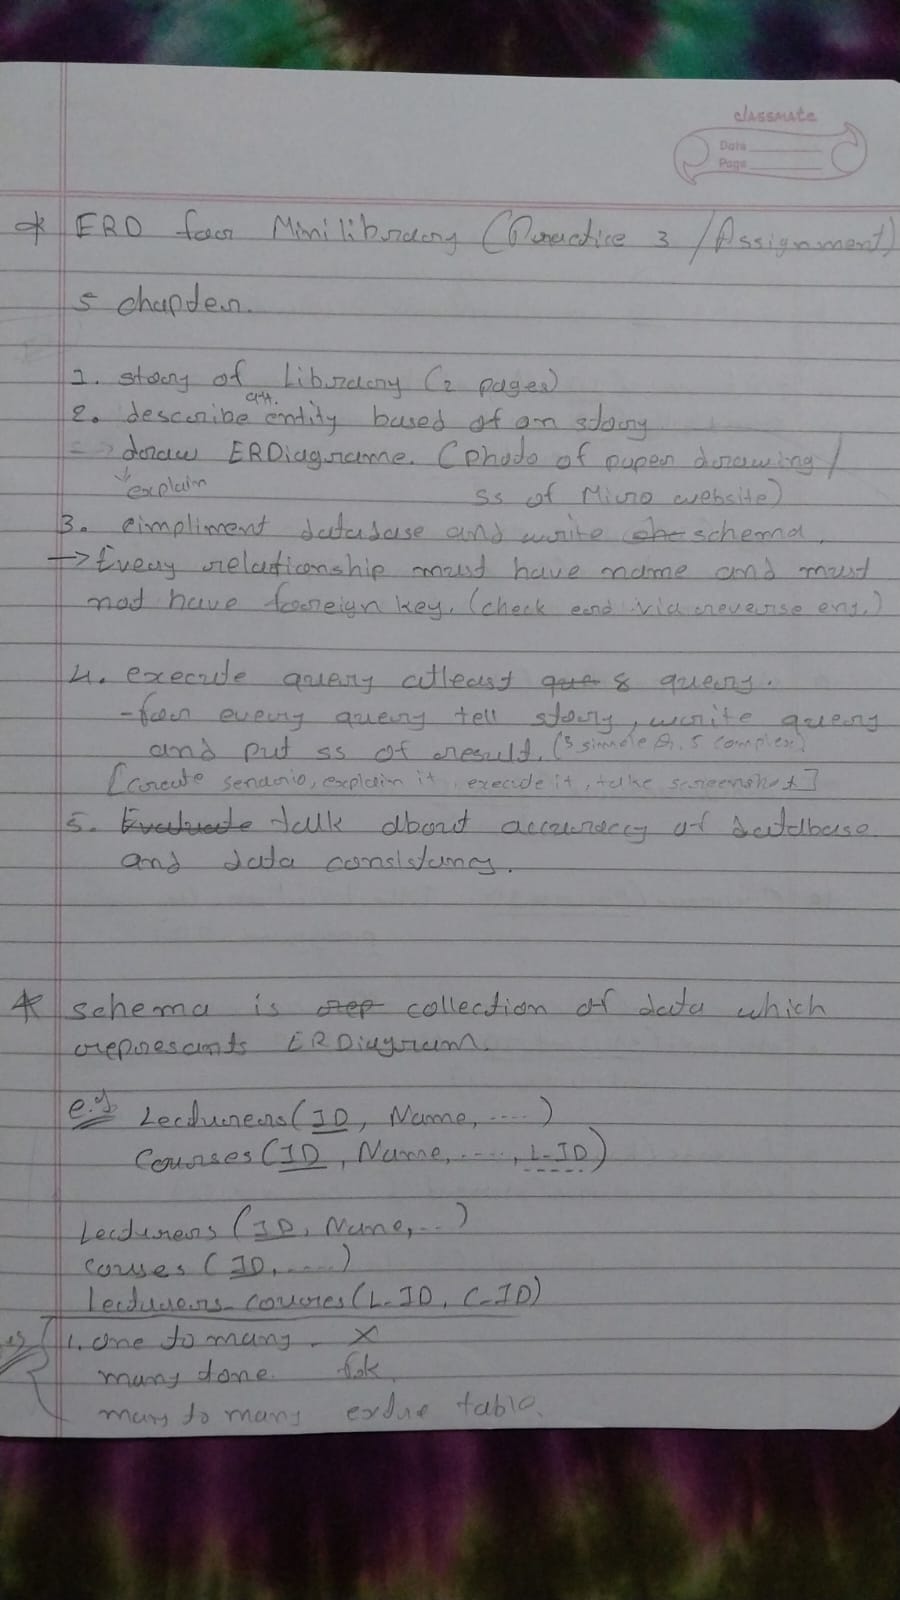 classmate
Date
Page
* ERD foor Mini library (Practice 3 / Assignment)
5 chapter.
1. story of Library (2 pages)
att.
2. describe entity based of on story
=> draw ERDiagrame. (photo of paper drawing /
explain ss of Micro website)
3. eimpliment database and write schema.
-> Every relationship must have name and must
not have foreign key. (check erd via reverse eng.)
4. execute query atleast que 8 query.
- for every query tell story, write query
and put ss of result. (3 simple &, 5 complex)
[create senario, explain it, execute it, take screenshot]
5. Evaluate talk about accuracy of database
and data consistancy.
* schema is rep collection of data which
represants ERDiagram.
e.g Lecturers(ID, Name, ....)
Courses(ID, Name, ...., L-ID)
Lecturers (ID, Name, ..)
courses (ID, ....)
Lecturers-cources(L-ID, C-ID)
1. one to many. X
many tone. fok
many to many extra table.